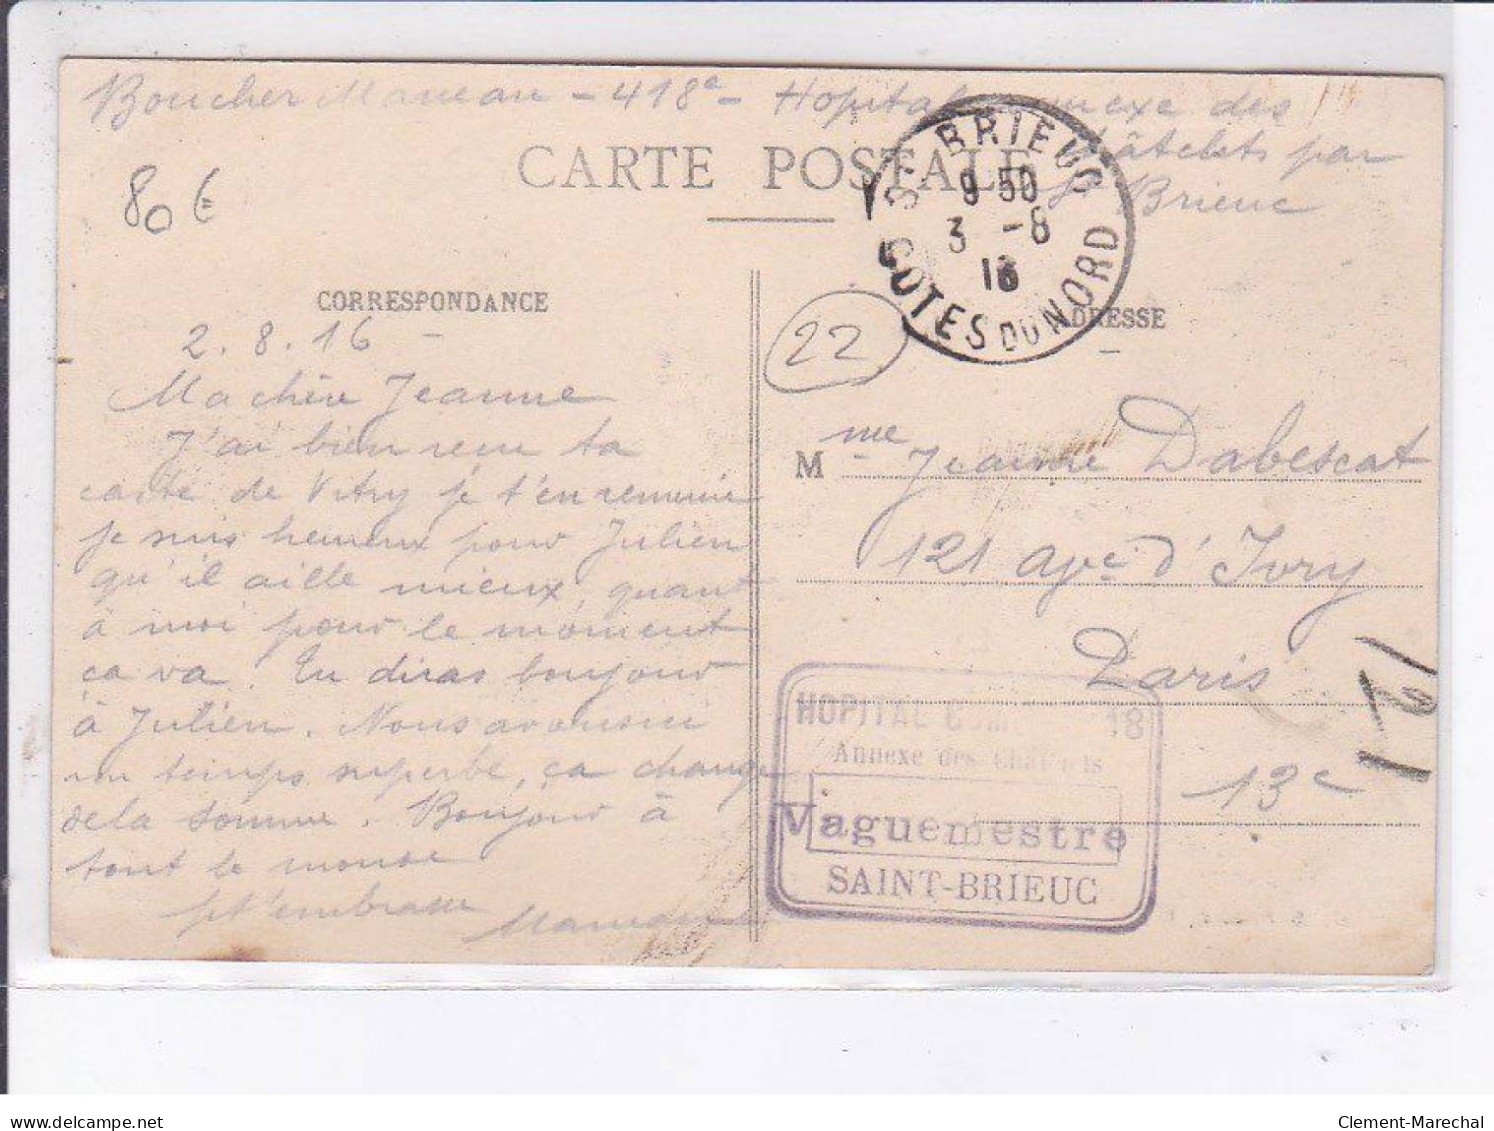 Boucher Marceau - 418e - Hopital annexe des
Châtelets par
St Brieuc
CARTE POSTALE
ST BRIEUC
9 50
3 -8
16
COTES DU NORD
80 €
CORRESPONDANCE
ADRESSE
22
2.8.16 -
Ma chère Jeanne
J'ai bien reçu ta
carte de Vitry je t'en remercie
je suis heureux pour Julien
qu'il aille mieux, quant
à moi pour le moment
ça va. Tu diras bonjour
à Julien. Nous avons ici
un temps superbe, ça change
de la Somme. Bonjour à
tout le monde
je t'embrasse
Marceau
Mme Jeanne Dabescat
121 Ave d'Ivry
Paris
13e
121
HOPITAL COM 18
Annexe des Chatelets
Vaguemestre
SAINT-BRIEUC
delcampe.net
Clement-Marechal